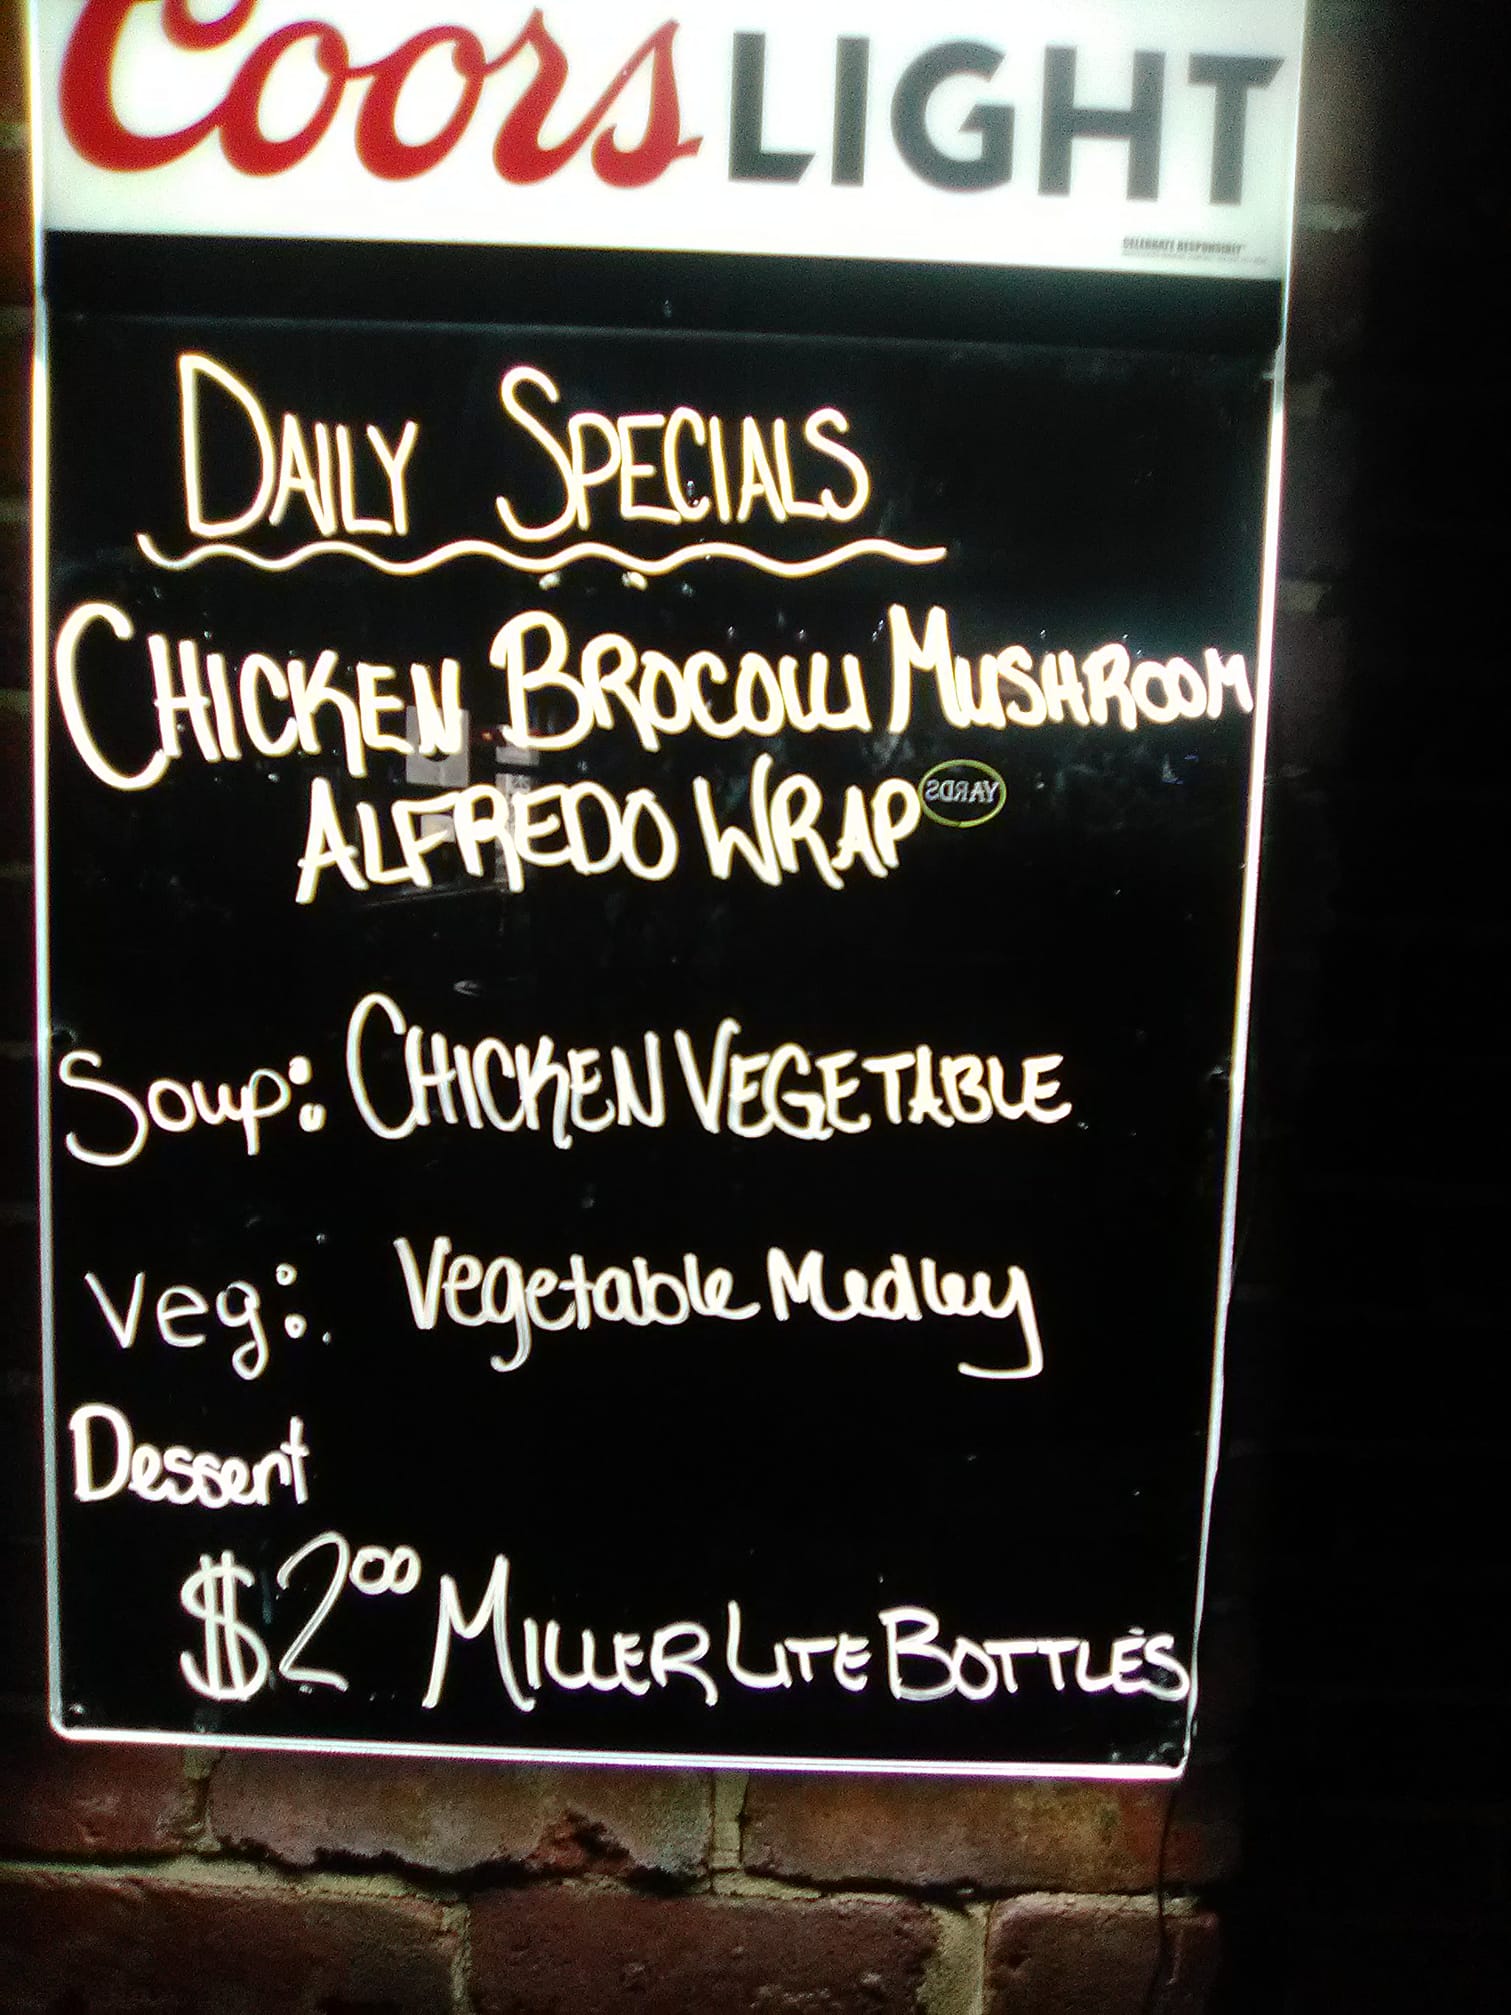 Coors LIGHT
CELEBRATE RESPONSIBLY
DAILY SPECIALS
CHICKEN BROCOLLI MUSHROOM
ALFREDO WRAP
YARDS
Soup: CHICKEN VEGETABLE
Veg: Vegetable Medley
Dessert
$2.00 MILLER LITE BOTTLES